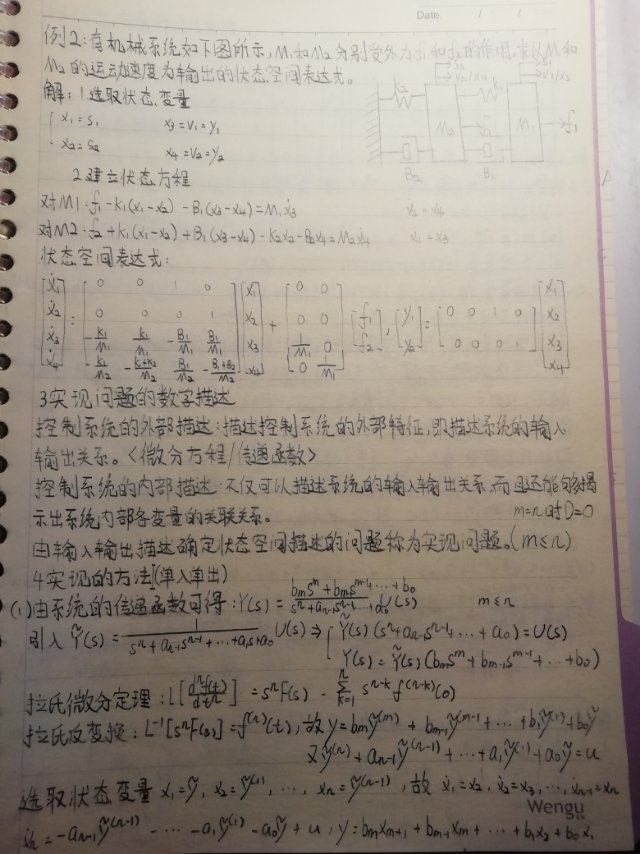 Date. / /
例2:有机械系统如下图所示,M1和M2分别受外力f1和f2的作用,求以M1和
M2的运动速度为输出的状态空间表达式。
解:1选取状态变量
x1=s1 x3=v1=y1
x2=s2 x4=v2=y2
K2 M2 K1 M1 f1
B2 B1
2建立状态方程
对M1:f1-K1(x1-x2)-B1(x3-x4)=M1ẋ3 ẋ2=x4
对M2:f2+K1(x1-x2)+B1(x3-x4)-K2x2-B2x4=M2ẋ4 ẋ1=x3
状态空间表达式:
[ẋ1 ẋ2 ẋ3 ẋ4] = [0 0 1 0; 0 0 0 1; -K1/M1 K1/M1 -B1/M1 B1/M1; K1/M2 -K1+K2/M2 B1/M2 -B1+B2/M2] [x1 x2 x3 x4] + [0 0; 0 0; 1/M1 0; 0 1/M1] [f1 f2], [y1 y2] = [0 0 1 0; 0 0 0 1] [x1 x2 x3 x4]
3实现问题的数字描述
控制系统的外部描述:描述控制系统的外部特征,即描述系统的输入
输出关系。<微分方程/传递函数>
控制系统的内部描述:不仅可以描述系统的输入输出关系,而且还能够揭
示出系统内部各变量的关联关系。 m=n时D=0
由输入输出描述确定状态空间描述的问题称为实现问题。(m≤n)
4实现的方法I(单入单出)
(1)由系统的传递函数可得:Y(s)=(bmsᵐ+bmsᵐ⁻¹...+b0)/(sⁿ+an-1sⁿ⁻¹...+a0)U(s) m≤n
引入Ỹ(s)=1/(sⁿ+an-1sⁿ⁻¹+...+a1s+a0)U(s)⇒{Ỹ(s)(sⁿ+an-1sⁿ⁻¹...+a0)=U(s)
Y(s)=Ỹ(s)(bmsᵐ+bm-1sᵐ⁻¹+...+b0)
拉氏微分定理:L[dⁿf(t)/dtⁿ]=sⁿF(s)-Σⁿk=1 sⁿ⁻ᵏf⁽ⁿ⁻ᵏ⁾(0)
拉氏反变换:L⁻¹[sⁿF(s)]=f⁽ⁿ⁾(t),故y=bmỹ⁽ᵐ⁾+bm-1ỹ⁽ᵐ⁻¹⁾+...+b1ỹ⁽¹⁾+b0ỹ
又ỹ⁽ⁿ⁾+an-1ỹ⁽ⁿ⁻¹⁾+...+a1ỹ⁽¹⁾+a0ỹ=u
选取状态变量x1=ỹ,x2=ỹ⁽¹⁾,...,xn=ỹ⁽ⁿ⁻¹⁾,故ẋ1=x2,ẋ2=x3,...,ẋn-1=xn
Wengu
ẋn=-an-1ỹ⁽ⁿ⁻¹⁾-...-a1ỹ⁽¹⁾-a0ỹ+u,y=bmxm+1+bm-1xm+...+b1x2+b0x1